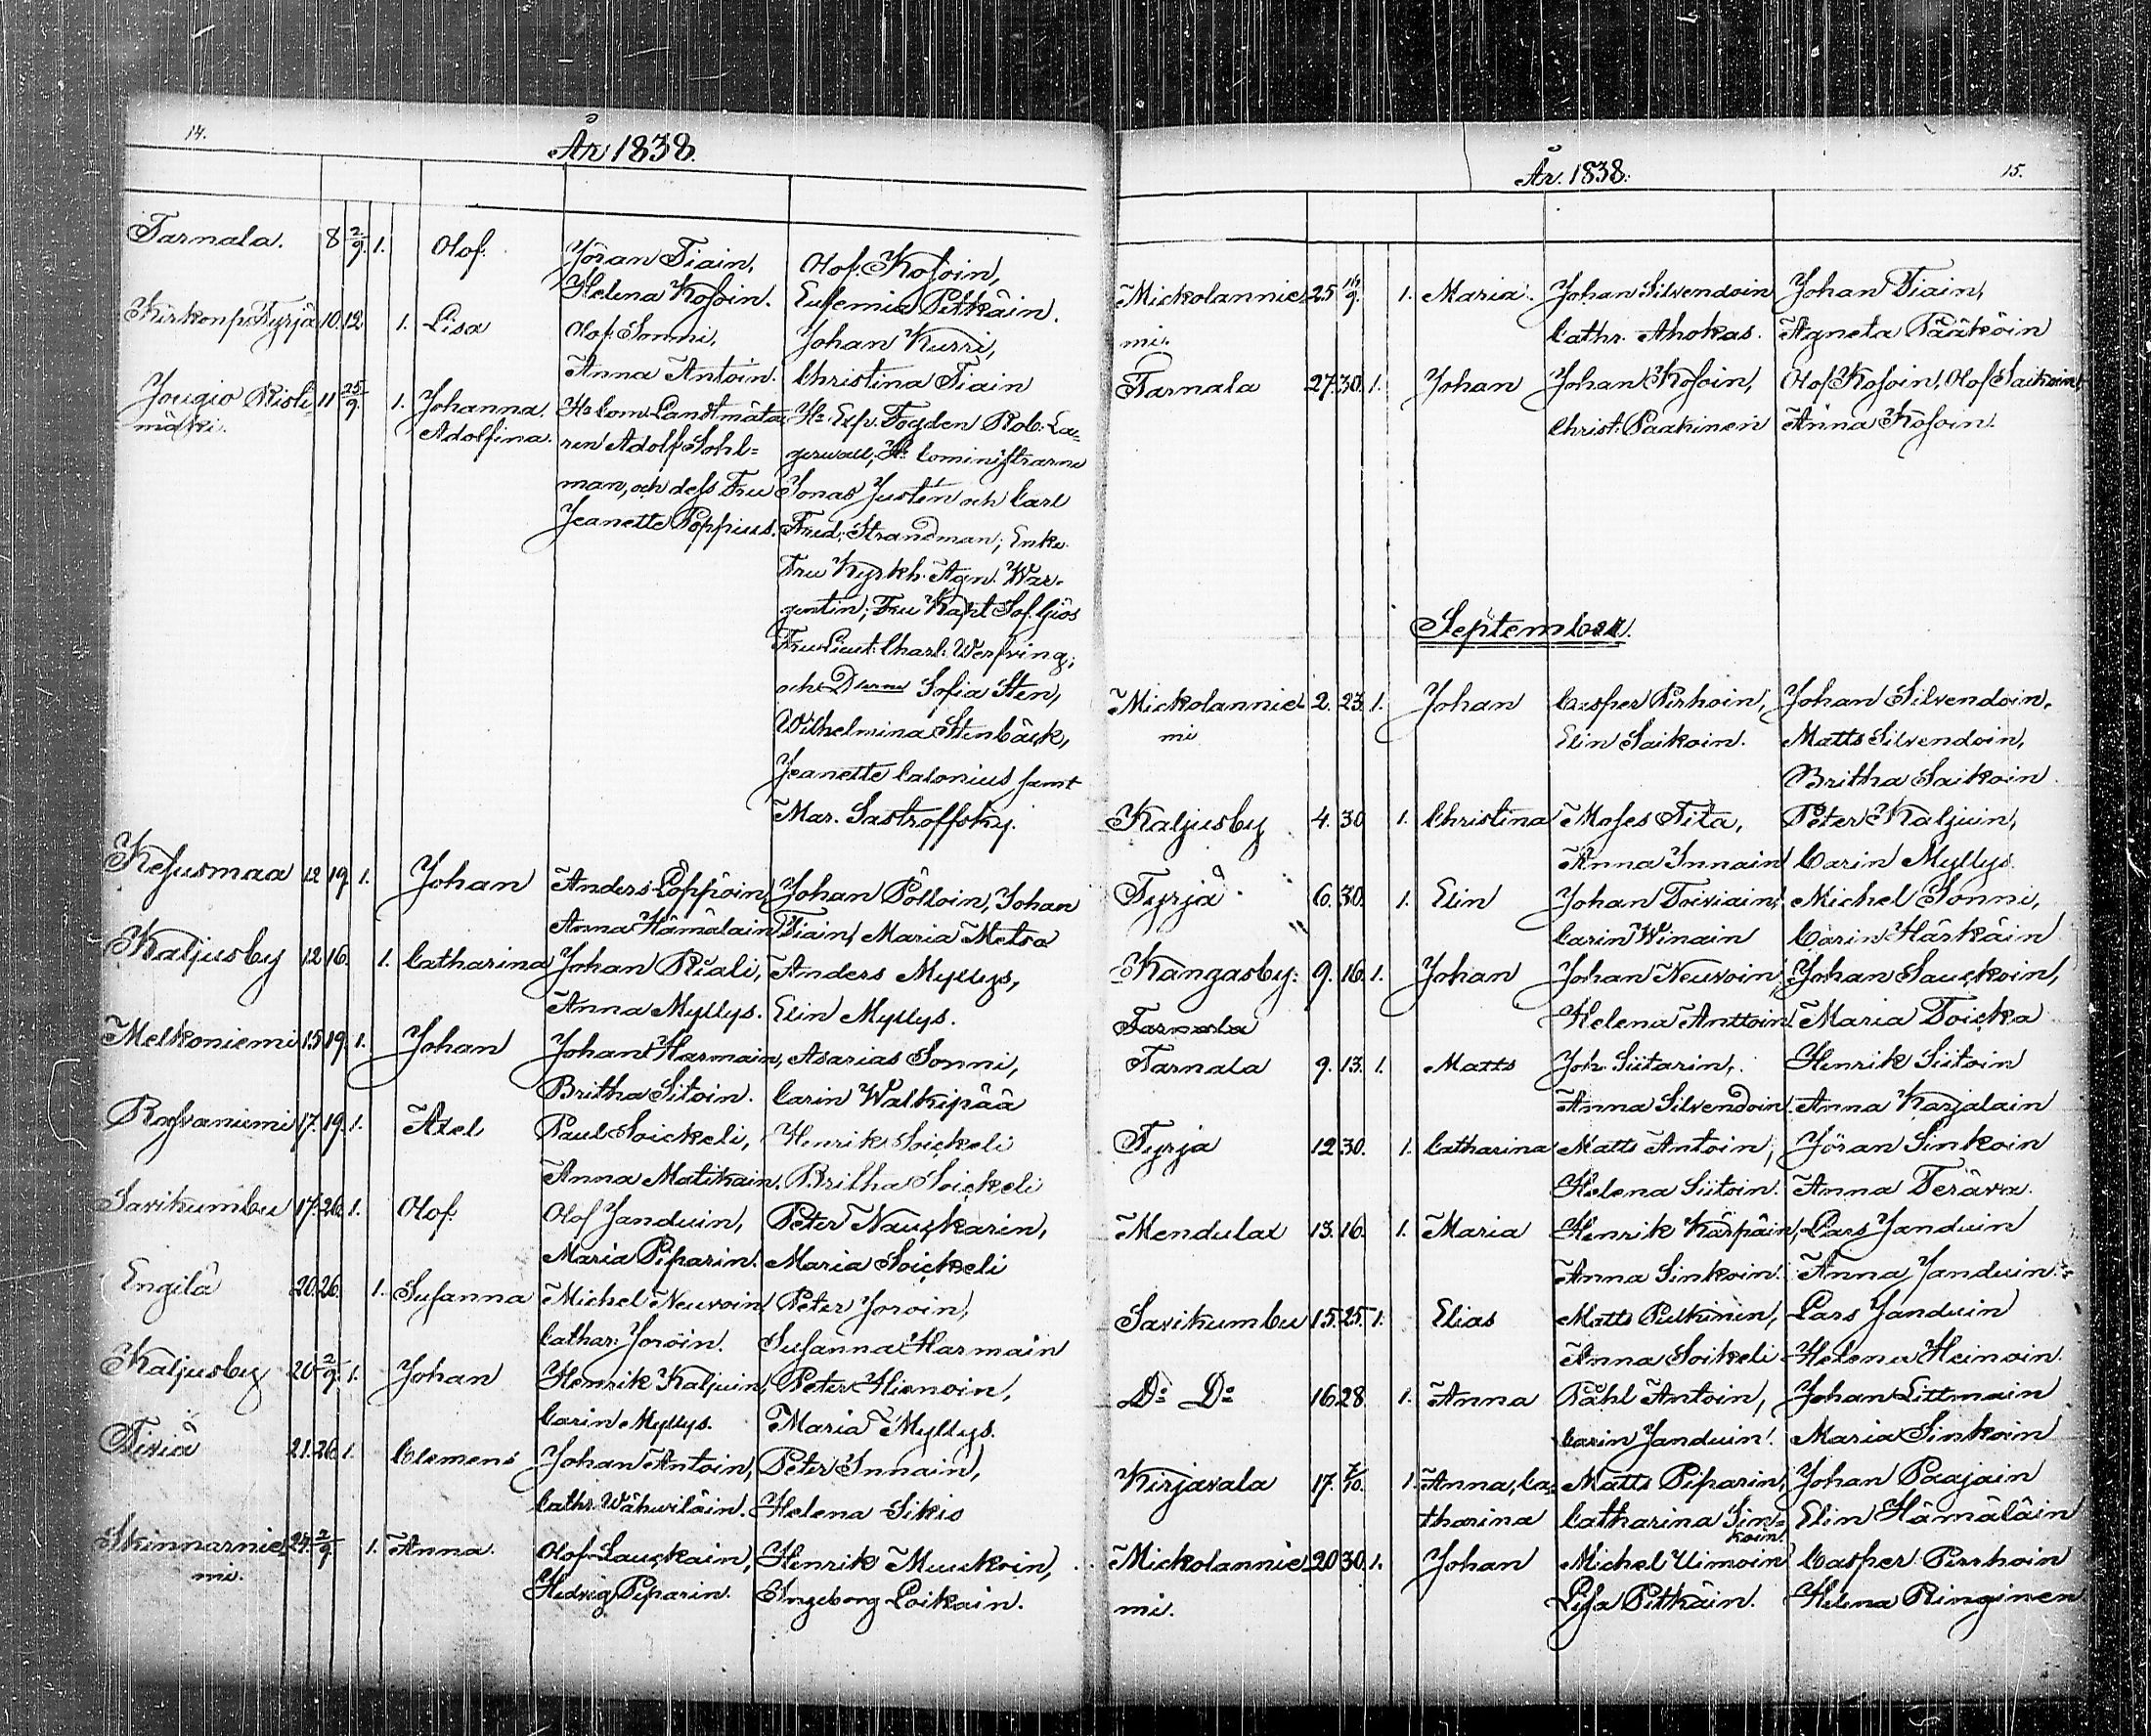 14.
År 1838.
Tarnala. 8 2/9. 1. Olof. Jöran Tiain, Olof. Kosoin,
Helena Kosoin. Eufemia Pitkäin.
Kirkonp. Tyrjä 10. 12. 1. Lisa Olof Sonni, Johan Kurri,
Anna Antoin. Christina Tiain
Jougio Risti 11 25/9. 1. Johanna Hr Com. Landtmäta Hr Exp. Fogden Rob. La=
mäki. Adolfina. ren Adolf Sohl= gerwall, Hr Cominist­rarne
man, och dess Fru Jonas Justén och Carl
Jeanette Poppius. Fred. Strandman; Enke
Fru Kyrkh. Agn. War=
gentin; Fru Kapt Sof.
Fru Lieut. Charl.
och Sofia Sten,
Wilhelmina Stenbäck,
Jeanette Calonius samt
Mar. Sastroffsky.
Kesusmaa 12 19. 1. Johan Anders Loppöin, Johan Pölloin, Johan
Anna Hämäläin Tiain, Maria Metso
Kaljusby 12 16. 1. Catharina Johan Riali, Anders Myllys,
Anna Myllys. Elin Myllys.
Melkoniemi 15 19. 1. Johan Johan Harmain, Asarias Sonni,
Britha Sitoin. Carin Walkipää
Rasvaniemi 17. 19. 1. Axel Paul Soickeli, Henrik Soickeli
Anna Matikain. Britha Soickeli
Savikumbu 17. 26. 1. Olof. Olof Janduin, Peter Nauckarin,
Maria Piparin. Maria Soickeli
Engilä 20. 26. 1. Susanna Michel Neuvoin Peter Joroin,
Cathar: Joroin. Susanna Harmain
Kaljusby 20 2/9. 1. Johan Henrik Kaljuin, Peter Hienoin,
Carin Myllys. Maria Myllys.
Tiviä 21. 26. 1. Clemens Johan Antoin, Peter Innain,
Cathr. Wähuviläin. Helena Sikiö
Skinnarnie 24. 2/9 1. Anna. Olof Lauckain, Henrik Muuckoin,
mi. Hedvig Piparin. Ingeborg Loikain.
År. 1838. 15.
Mickolannie 25 16/9. 1. Maria. Johan Silvendoin Johan Tiain,
mi. Cathr. Ahokas. Agneta Pääköin
Tarnala 27. 30. 1. Johan Johan Kosoin, Olof Kosoin, Olof Saikoin
Christ. Paakinen Anna Kosoin.
September.
Mickolannie 2. 23. 1. Johan Casper Pirhoin, Johan Silvendoin,
mi Elin Saikoin. Matts Silvendoin,
Britha Saikoin
Kaljusby 4. 30 1. Christina Moses Tita, Peter Kaljuin,
Anna Innain Carin Myllys
Tyrjä 6. 30. 1. Elin Johan Toiviain, Michel Sonni,
Carin Winain Carin Härkäin
Kangasby: 9. 16. 1. Johan Johan Neuvoin, Johan Sauckoin,
Tarnala Helena Anttoin. Maria Toicka
Tarnala 9. 13. 1. Matts Joh. Siitarin, Henrik Siitoin
Anna Silvendoin. Anna Karjalain
Tyrja 12 30. 1. Catharina Matts Antoin, Jöran Sinkoin
Helena Siitoin. Anna Terävä.
Mendulax 13. 16. 1. Maria Henrik Kärpäin, Lars Janduin
Anna Sinkoin. Anna Janduin.
Savikumbu 15. 25. 1. Elias Matts Pulkinen, Lars Janduin
Anna Soikeli Helena Heinoin.
Do Do 16. 28. 1. Anna Påhl Antoin, Johan Littmain
Carin Janduin. Maria Sinkoin
Kirjavala 17. 7/10. 1. Anna, Ca= Matts Piparin, Johan Paajain
tharina Catharina Sin= Elin Hämäläin
koin.
Mickolannie 20 30. 1. Johan Michel Uimoin Casper Pirrhoin
mi. Lisa Pitkäin. Helena Ringinen